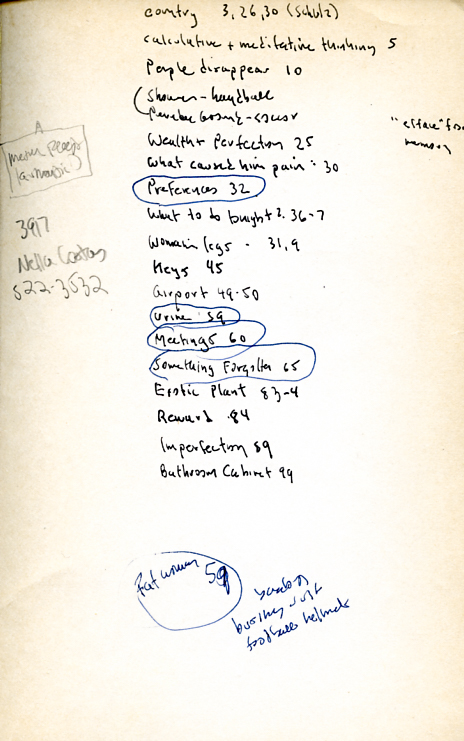 country 3, 26, 30 (Schulz)
calculative + meditative thinking 5
People disappear 10
Shower - handball
Wealth + Perfection 25
What caused him pain: 30
Preferences 32
What to do tonight? 36-7
Woman's legs - 31, 9
Keys 45
airport 49-50
Urine 59
Meetings 60
Something Forgotten 65
Erotic Plant 83-4
Reward 84
Imperfection 89
Bathroom Cabinet 99
A
3917
Nella
522-3532
Fat woman 59
business suit
football helmets